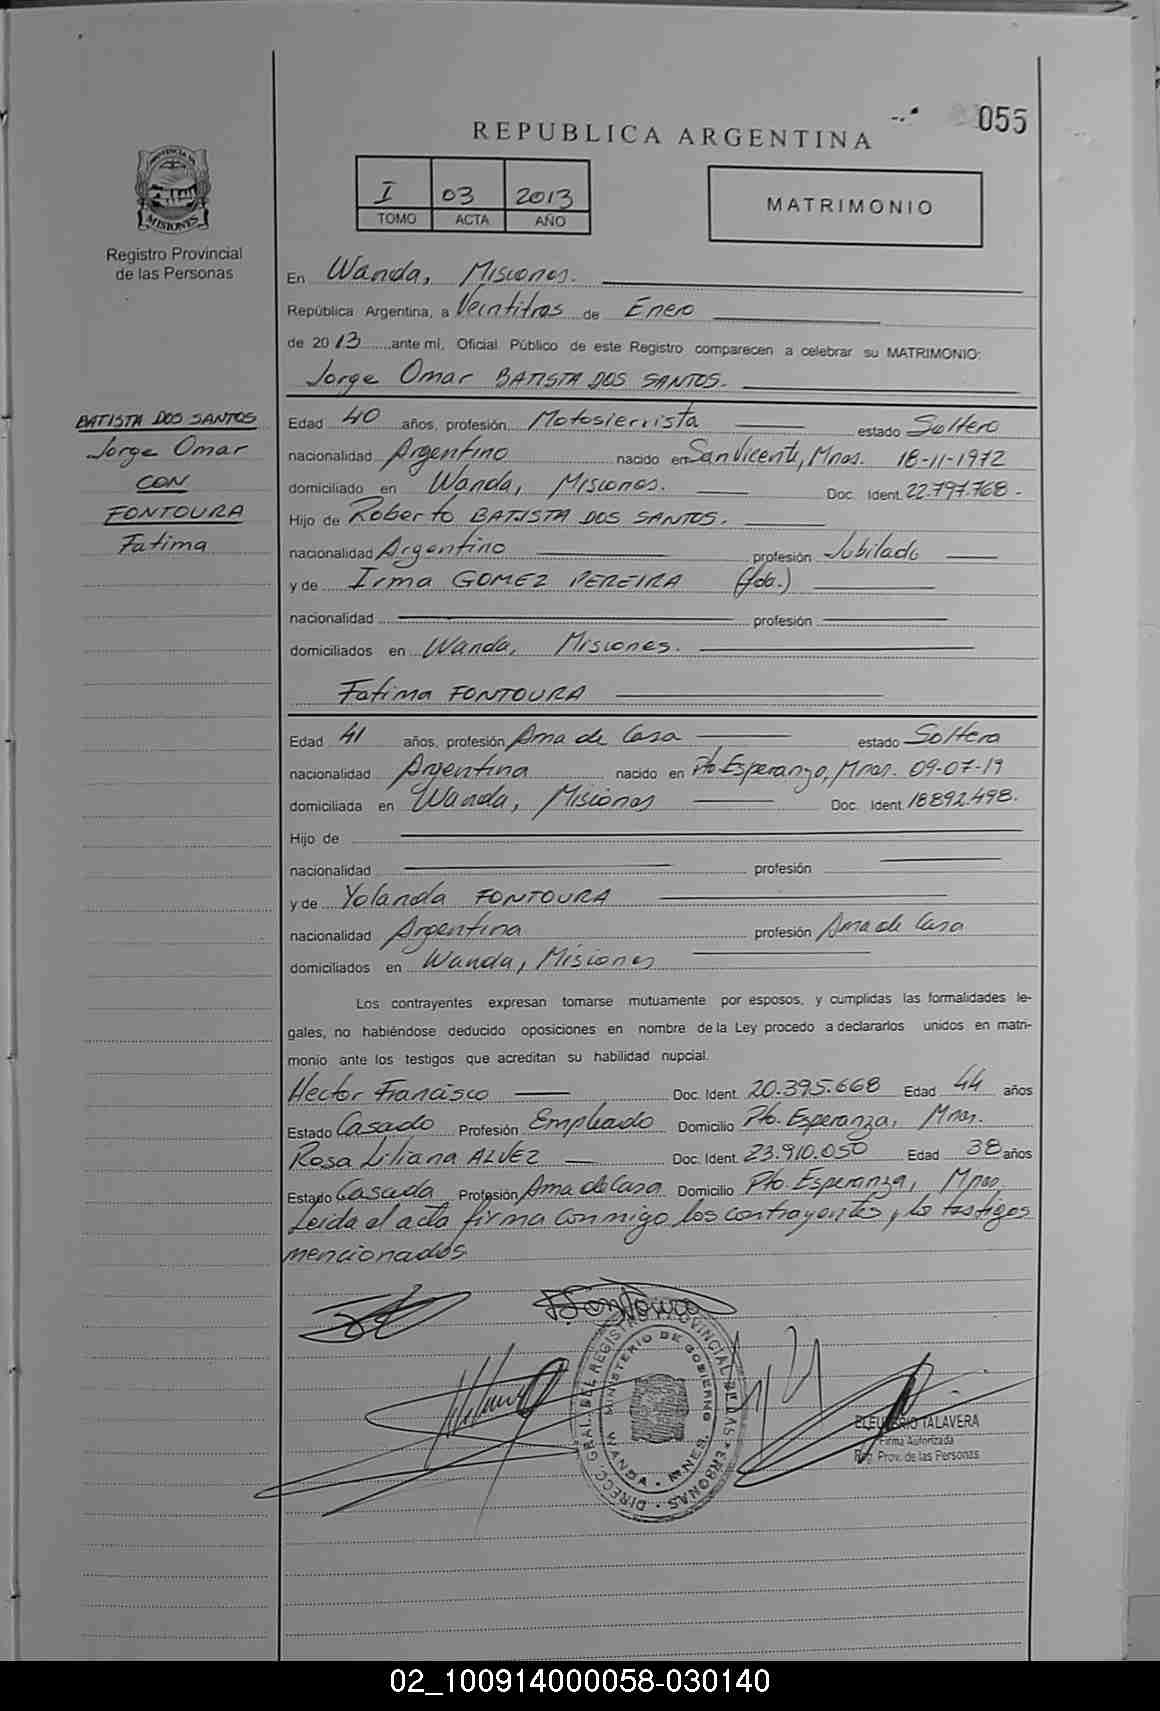 055
REPUBLICA ARGENTINA
PROVINCIA DE
MISIONES
Registro Provincial
de las Personas
I 03 2013
TOMO ACTA AÑO
MATRIMONIO
En Wanda, Misiones.
República Argentina, a Veintitres de Enero
de 2013 ante mí, Oficial Público de este Registro comparecen a celebrar su MATRIMONIO:
Jorge Omar BATISTA DOS SANTOS.
BATISTA DOS SANTOS
Jorge Omar
CON
FONTOURA
Fatima
Edad 40 años, profesión Motosierrista estado Soltero
nacionalidad Argentino nacido en San Vicente, Mnes. 18-11-1972
domiciliado en Wanda, Misiones. Doc. Ident. 22.797.768.
Hijo de Roberto BATISTA DOS SANTOS.
nacionalidad Argentino profesión Jubilado
y de Irma GOMEZ PEREIRA (fda.)
nacionalidad profesión
domiciliados en Wanda, Misiones.
Fatima FONTOURA
Edad 41 años, profesión Ama de Casa estado Soltera
nacionalidad Argentina nacido en Pto Esperanza, Mnes. 09-07-19
domiciliada en Wanda, Misiones Doc. Ident. 18892.498.
Hijo de
nacionalidad profesión
y de Yolanda FONTOURA
nacionalidad Argentina profesión Ama de Casa
domiciliados en Wanda, Misiones
Los contrayentes expresan tomarse mutuamente por esposos, y cumplidas las formalidades le-
gales, no habiéndose deducido oposiciones en nombre de la Ley procedo a declararlos unidos en matri-
monio ante los testigos que acreditan su habilidad nupcial.
Hector Francisco Doc. Ident. 20.395.668 Edad 44 años
Estado Casado Profesión Empleado Domicilio Pto. Esperanza, Mnes.
Rosa Liliana ALVEZ Doc. Ident. 23.910.050 Edad 38 años
Estado Casada Profesión Ama de Casa Domicilio Pto. Esperanza, Mnes.
Leida el acta firma conmigo los contrayentes y lo testigos
mencionados
Fontoura
DIRECC. GRAL. DEL REGISTRO PROVINCIAL DE LAS PERSONAS
MINISTERIO DE GOBIERNO
WANDA - MNES.
ELEUTERIO TALAVERA
Firma Autorizada
Reg. Prov. de las Personas
02_100914000058-030140